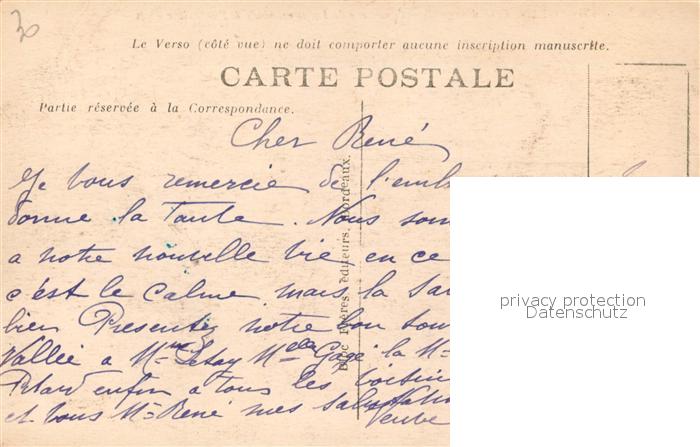 30
Le Verso (côté vue) ne doit comporter aucune inscription manuscrite.
CARTE POSTALE
Partie réservée à la Correspondance.
Cher René
Je vous remercie de l'emb
donne la Tante. Nous som
a notre nouvelle vie en ce
c'est le calme. mais la San
bien Presentez notre bon sou
Vallée a Mme Mlle la M
enfin a tous les voisin
et vous Mr René mes
Bloc Frères, éditeurs, Bordeaux.
privacy protection
Datenschutz